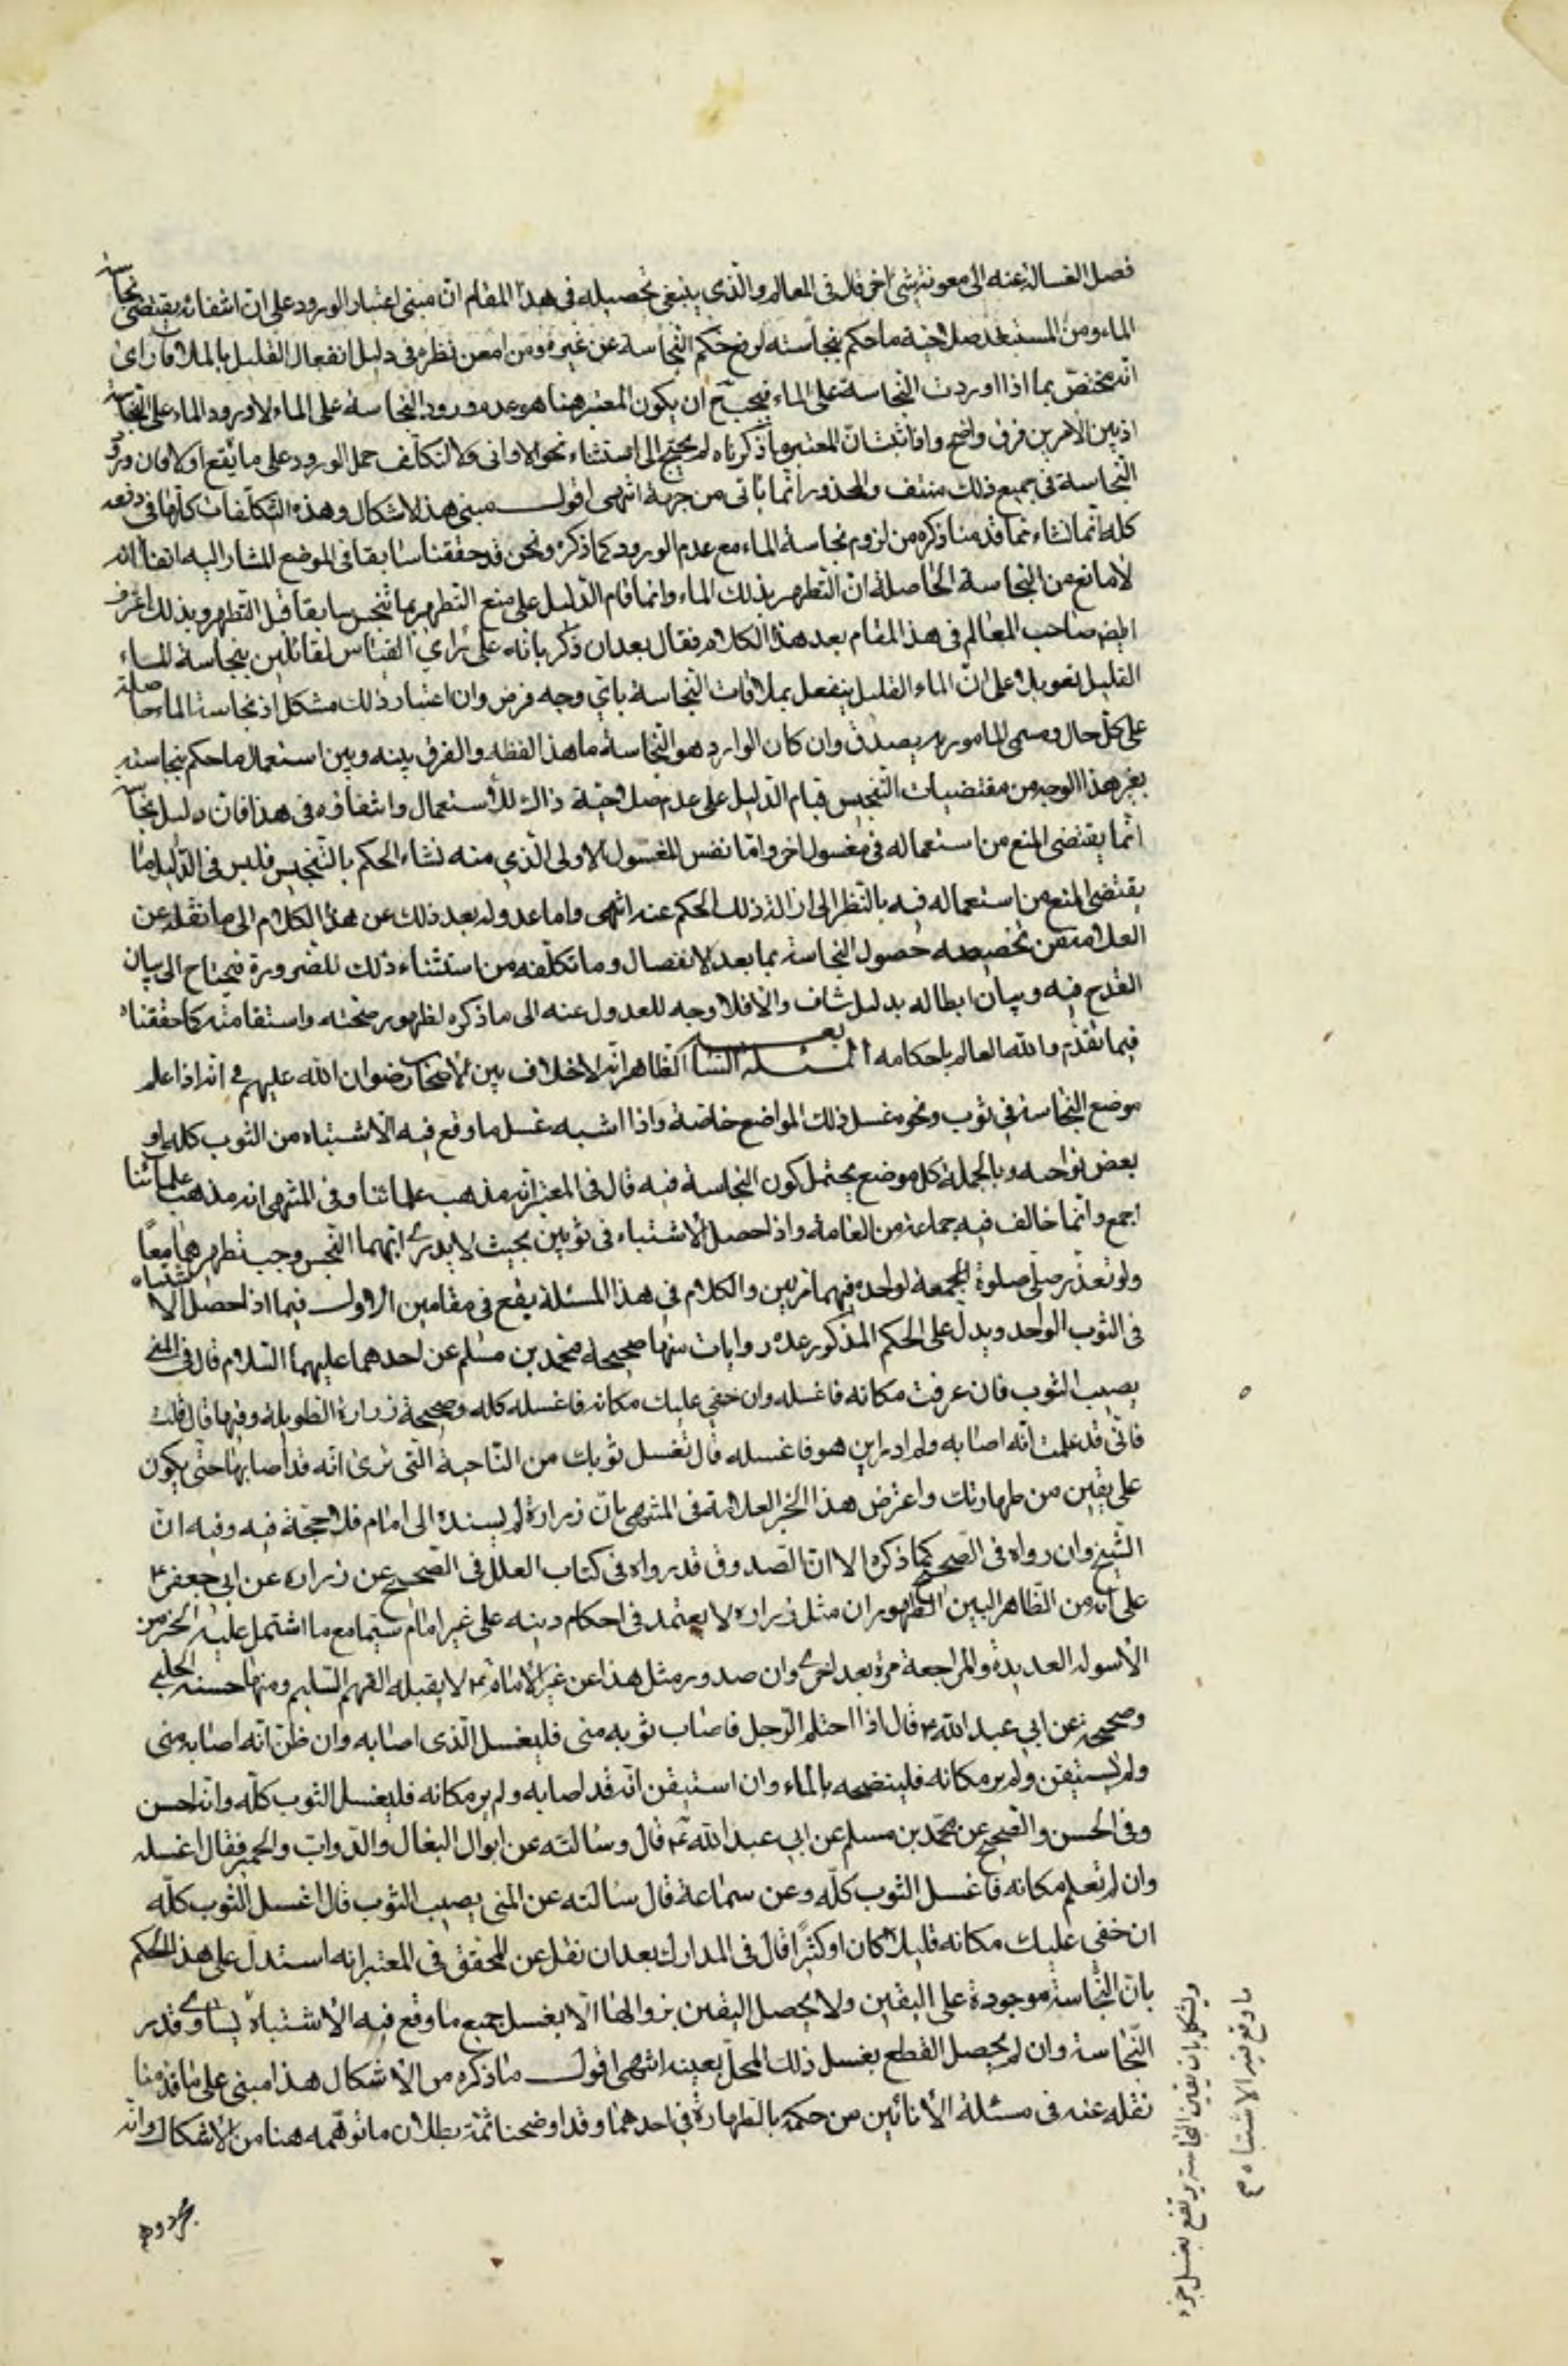 فصل الغسالة عنه الى معونة شئ اخر قال فى المعالم والذي ينبغى تحصيله فى هذا المقام ان مبنى اعتبار الورود على ان انتفائه يقتضى نجاسة
الماء ومن المستبعد صلاحية ما حكم بنجاسته لرفع حكم النجاسة عن غيره ومن امعن نظره فى دليل انفعال القليل بالملاقات راى
انه مختص بما اذا اوردت النجاسة على الماء فيجب ح ان يكون المعتبر هنا هو عدم ورود النجاسة على الماء لا ورود الماء على النجاسة
اذ بين الامرين فرق واضح واذا ثبت ان المعتبر ما ذكرناه لم يحتج الى استثناء نحو الاوانى ولا التكلف حمل الورود على ما يقع اولا فان ورود
النجاسة فى جميع ذلك منتف والمحذور انما ياتى من جهة انتهى اقول مبنى هذا الاشكال وهذه التكلفات كلها فى دفعه
كله انما نشاء مما قدمنا ذكره من لزوم نجاسة الماء مع عدم الورود كما ذكره ونحن قد حققنا سابقا فى الموضع المشار اليه انفا انه
لا مانع من النجاسة الحاصلة ان التطهر بذلك الماء وانما قام الدليل على منع التطهر بما تنجس سابقا قبل التطهر وبذلك اعترف
ايض صاحب المعالم فى هذا المقام بعد هذا الكلام فقال بعد ان ذكر بانه على راي الفتاس لقائلين بنجاسة الماء
القليل تعويلا على ان الماء القليل ينفعل بملاقات النجاسة باي وجه فرض وان اعتبار ذلك مشكل اذ نجاسة الماء حاصلة
على كل حال ومسمى المامور به يصدق وان كان الوارد هو النجاسة ما هذا لفظه والفرق بينه وبين استعمال ما حكم بنجاسته
بغير هذا الوجه من مقتضيات التنجيس قيام الدليل على عدم صلاحية ذاك للاستعمال وانتفاؤه فى هذا فان دليل نجاسته
انما يقتضى المنع من استعماله فى مغسول اخر واما نفس المغسول الاولى الذي منه نشاء الحكم بالتنجيس فليس فى الدليل ما
يقتضى المنع من استعماله فيه بالنظر الى ازالة ذلك الحكم عنه انتهى واما عدوله بعد ذلك عن هذا الكلام الى ما نقله عن
العلامة من تخصيصه حصول النجاسة بما بعد الانفصال وما تكلفه من استثناء ذلك للضرورة فيحتاج الى بيان
القدح فيه وبيان ابطاله بدليل شاف والا فلا وجه للعدول عنه الى ما ذكره لظهور صحته واستقامته كما حققناه
فيما تقدم والله العالم باحكامه المسئلة السابعة الظاهر انه لا خلاف بين الاصحاب رضوان الله عليهم فى انه اذا علم
موضع النجاسة فى ثوب ونحوه غسل ذلك المواضع خاصة واذا اشتبه غسل ما وقع فيه الاشتباه من الثوب كله او
بعض نواحيه وبالجملة كل موضع يحتمل كون النجاسة فيه قال فى المعتبر انه مذهب علمائنا وفى المنتهى انه مذهب علمائنا
اجمع وانما خالف فيه جماعة من العامة واذا حصل الاشتباه فى ثوبين بحيث لا يدرى ايهما النجس وجب تطهيرهما معاً
ولو تعذر صلى صلوة الجمعة لواحده فيهما مرتين والكلام فى هذا المسئلة يقع فى مقامين الاول فيما اذا حصل الاشتباه
فى الثوب الواحد ويدل على الحكم المذكور عدة روايات منها صحيحة محمد بن مسلم عن احدهما عليهما السلام قال فى المنى
يصيب الثوب فان عرفت مكانه فاغسله وان خفي عليك مكانه فاغسله كله وصحيحة زرارة الطويلة وفيها قال قلت
فانى قد علمت انه اصابه ولم ادر اين هو فاغسله قال تغسل ثوبك من الناحية التى ترى انه قد اصابها حتى يكون
على يقين من طهارتك واعترض هذا الخبر العلامة فى المنتهى بان زرارة لم يسنده الى امام فلا حجة فيه وفيه ان
الشيخ وان رواه فى الصحيح كما ذكره الا ان الصدوق قد رواه فى كتاب العلل فى الصحيح عن زرارة عن ابي جعفر ع
على انه من الظاهر البين الظهور ان مثل زرارة لا يعتمد فى احكام دينه على غير امام سيما مع ما اشتمل عليه الخبر من
الأسولة العديدة والمراجعة مرة بعد اخرى وان صدور مثل هذا عن غير الامام ع لا يقبله الفهم السليم ومنها حسنة الحلبي
وصحيحه عن ابي عبد الله ع قال اذا احتلم الرجل فاصاب ثوبه منى فليغسل الذى اصابه وان ظن انه اصابه منى
ولم يستيقن ولم ير مكانه فلينضحه بالماء وان استيقن انه قد اصابه ولم ير مكانه فليغسل الثوب كله وانه احسن
وفى الحسن والصحيح عن محمد بن مسلم عن ابي عبد الله ع قال وسالته عن ابوال البغال والدواب والحمير فقال اغسله
وان لم تعلم مكانه فاغسل الثوب كله وعن سماعة قال سالته عن المنى يصيب الثوب قال اغسل الثوب كله
ان خفى عليك مكانه قليلا كان او كثيراً قال فى المدارك بعد ان نقل عن المحقق فى المعتبر انه استدل على هذا الحكم
بان النجاسة موجودة على اليقين ولا يحصل اليقين بزوالها الا بغسل جميع ما وقع فيه الاشتباه يساوى قدر
النجاسة وان لم يحصل القطع بغسل ذلك المحل بعينه انتهى اقول ما ذكره من الاشكال هذا مبنى على ما قدمنا
نقله عنه فى مسئلة الأنائين من حكمه بالطهارة فى احدهما وقد اوضحنا ثمة بطلان ما توهمه هنا من الاشكال وانه
ويشكل بان يقين النجاسة يرتفع بغسل جزء
ما وقع فيه الاشتباه ص